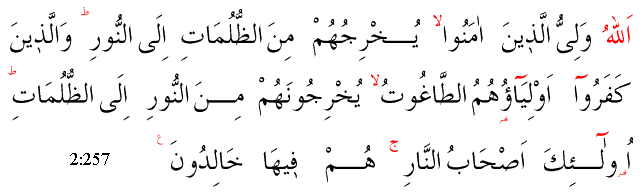 اَللّٰهُ وَلِىُّ الَّذٖينَ اٰمَنُوا ۙ يُخْرِجُهُمْ مِنَ الظُّلُمَاتِ اِلَى النُّورِ ۜ وَالَّذٖينَ
كَفَرُوٓا اَوْلِيَٓاؤُ۬هُمُ الطَّاغُوتُ ۙ يُخْرِجُونَهُمْ مِنَ النُّورِ اِلَى الظُّلُمَاتِ ۜ
اُو۬لٰٓئِكَ اَصْحَابُ النَّارِ ۚ هُمْ فٖيهَا خَالِدُونَ ࣖ 2:257